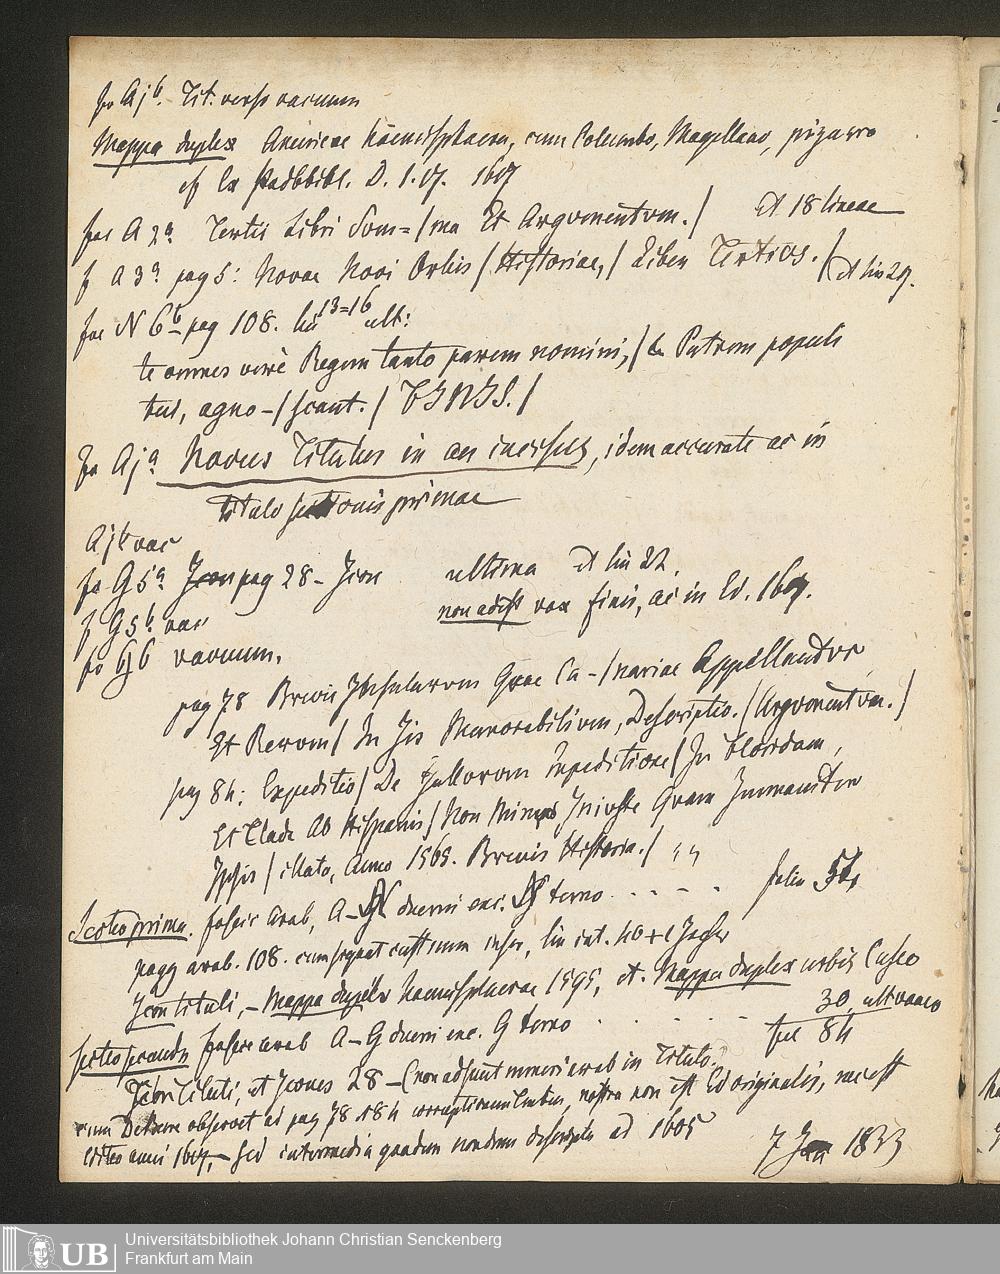 fo A j b. Tit. verso vacuum
Mappa duplex Americae haemisphaera, cum Columbo, Magellano, pizarro
ex Stadtbibl. D. 1. 17. 1617
fac A 2 a Tertii Libri Som= / ma Et Argvmentvm. / et 18 lineae
f A 3 a pag 5: Novae Novi Orbis / Historiae, / Liber Tertivs. / et lin 27.
fac N 6 b pag 108. lin 13=16 ult:
te omnes vere Regem tanto parem nomini, / & Patrem populi
tui, agno- / scant. / FINIS. /
fo A j a Novus Titulus in aes incisus, idem accurate ac in
titulo sectionis primae
A j b vac
fo G 5 a Icon pag 28 - Icon ultima et lin 22.
f G 5 b vac non adest vox finis, ac in Ed. 1617.
fo G 6 vacuum.
pag 78 Brevis Insvlarvm Qvae Ca- / nariae Appellantvr
Et Rervm / In Iis Memorabilivm, Descriptio. / Argvmentvm. /
pag 84: Expeditio / De Gallorvm Expeditione / In Floridam,
Et Clade Ab Hispanis / Non Minvs Inivste Qvam Immaniter
Ipsis / illato, Anno 1565. Brevis Historia. /
Sectio prima. foliis arab, A-N duerni exc. N terno . . . . folia 54
pagg arab. 108. cum signat cust num inscr, lin int. 40 +
Icon tituli, - Mappa duplex haemisphaerae 1595, et. Mappa duplex urbis Cusco
Sectio secunda foliis arab A-G duerni exc. G terno . . . . . 30 ult vacuo
fol 84
Fabri Tituli, et Icones 28 - (non adsunt numeri arab in Titulo.
cum observet ad pag 78 + 84 nostra non est Ed originalis, nec est
editio anni 1617, - sed intermedia quaedam nondum descripta ad 1605
7 Jan 1833
Universitätsbibliothek Johann Christian Senckenberg
Frankfurt am Main
UB